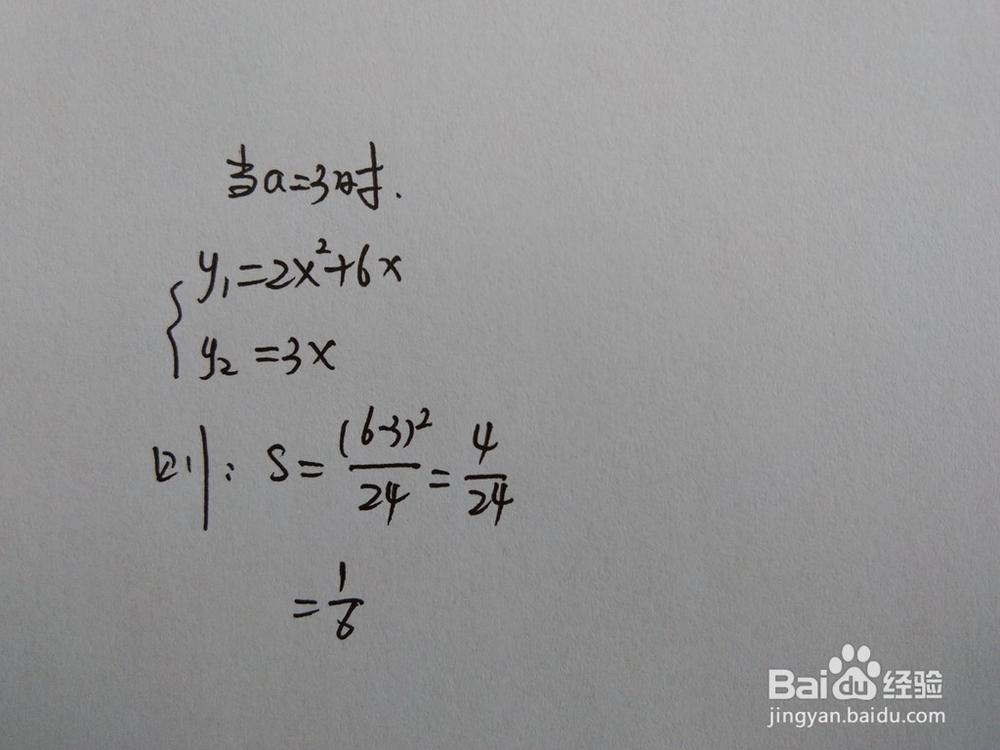 当a=3时.
y₁=2x²+6x
y₂=3x
则: S=(6-3)²/24=4/24
=1/6
Baidu经验
jingyan.baidu.com